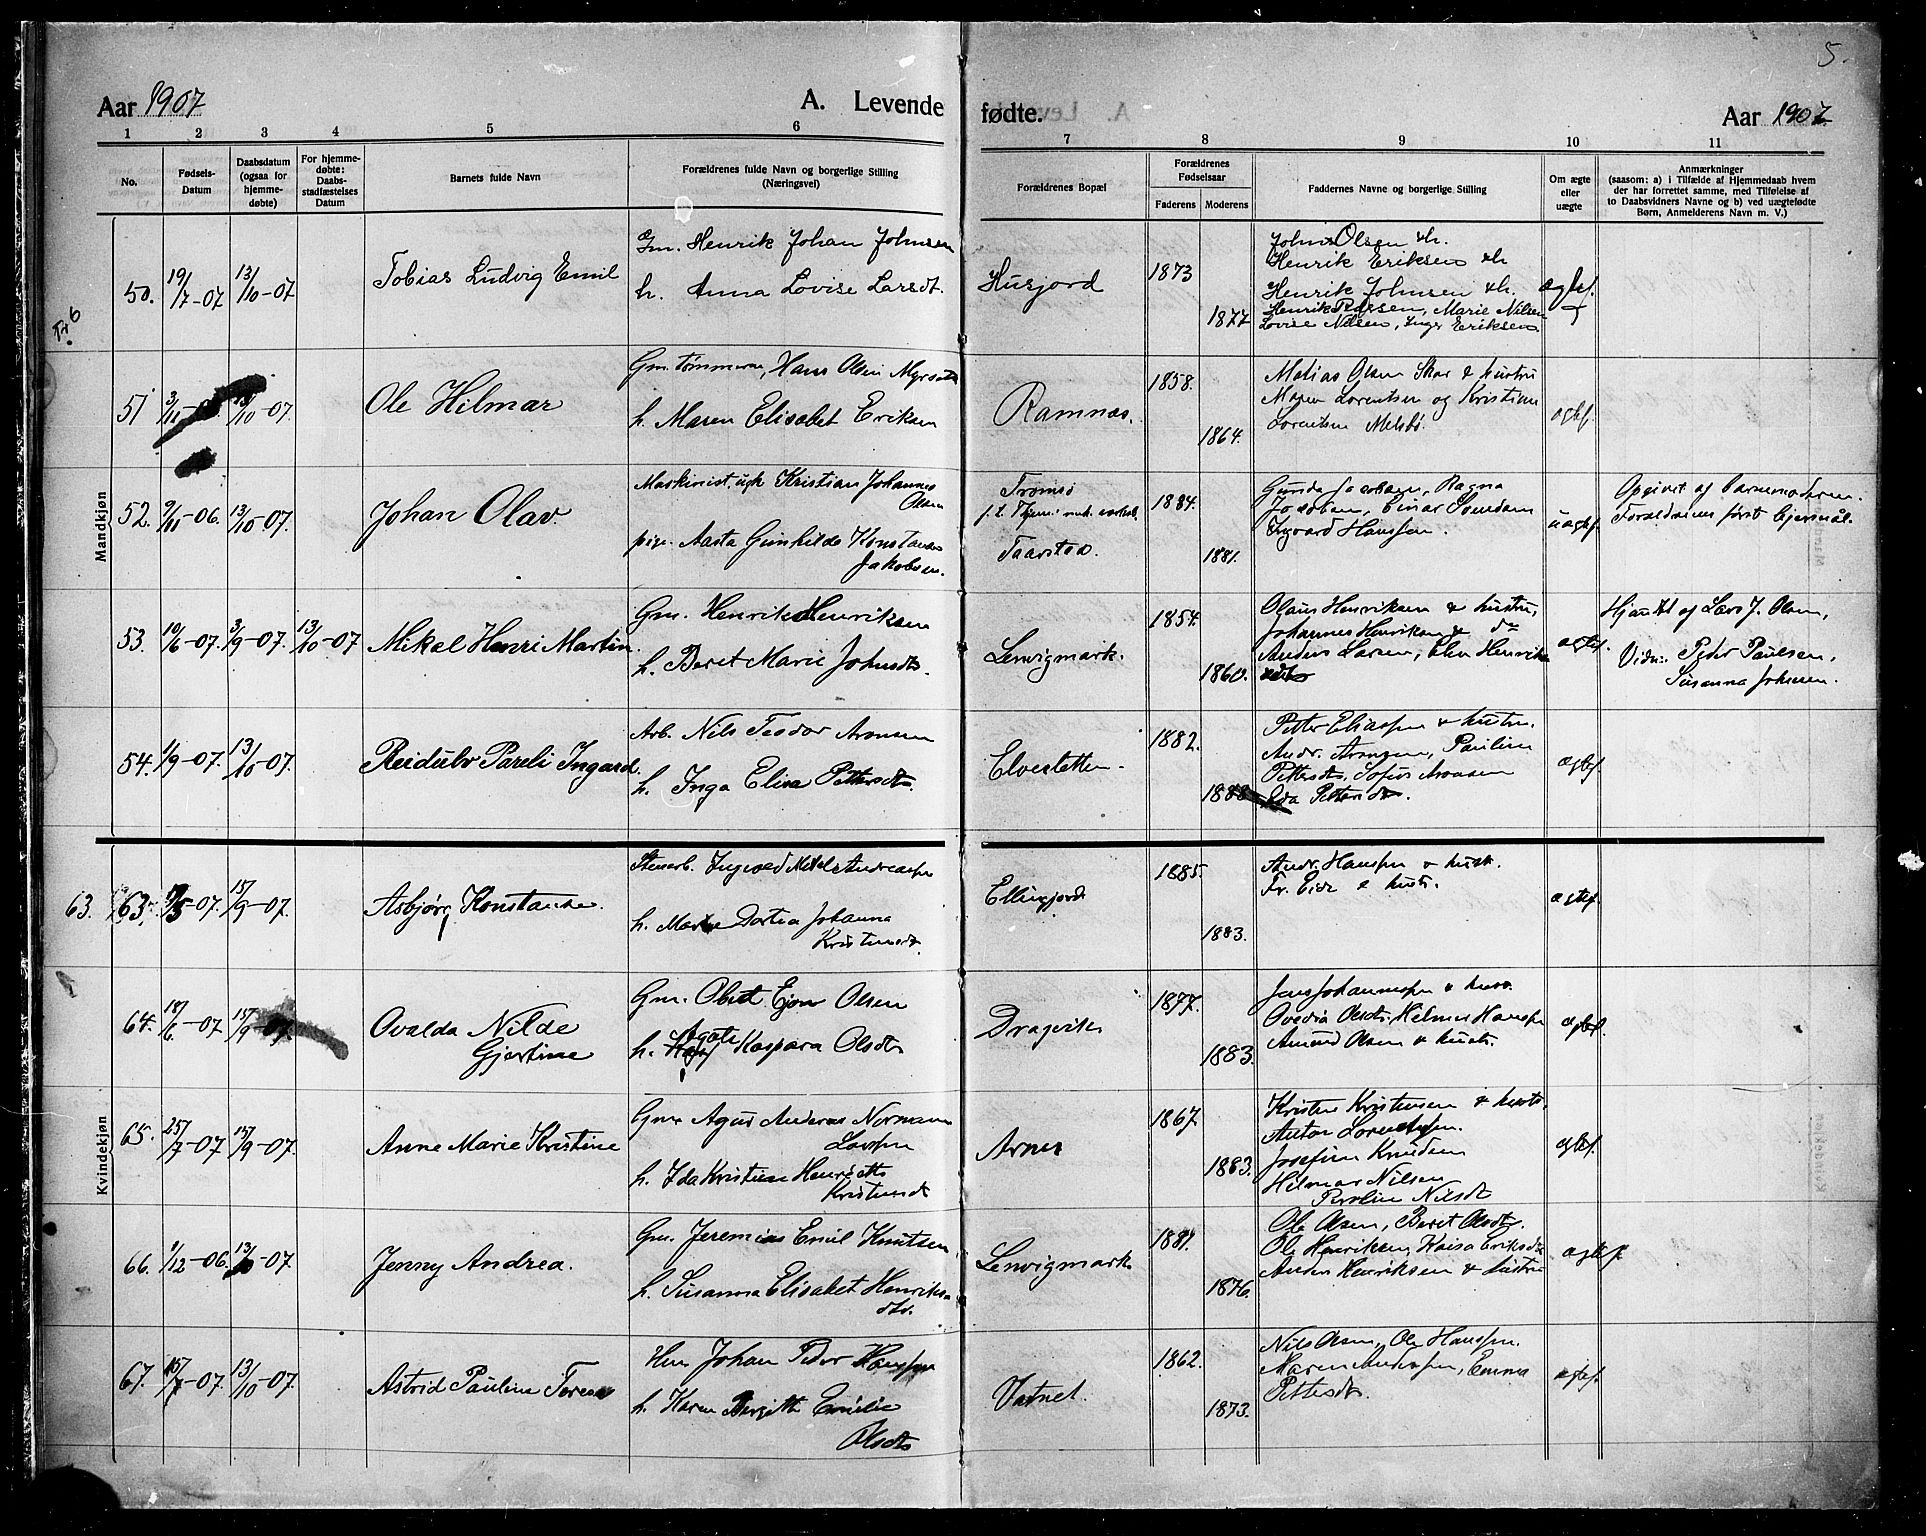 5.
Aar 1907
A. Levende
fødte.
Aar 1907.
1 2 3 4 5 6 7 8 9 10 11
No.
Fødsels-
Datum
Daabsdatum
(ogsaa for
hjemme-
døbte)
For hjemme-
døbte:
Daabs-
stadfæstelses
Datum
Barnets fulde Navn
Forældrenes fulde Navn og borgerlige Stilling
(Næringsvei)
Forældrenes Bopæl
Forældrenes
Fødselsaar
Faderens Moderens
Faddernes Navne og borgerlige Stilling
Om ægte
eller
uægte
Anmærkninger
(saasom: a) i Tilfælde af Hjemmedaab hvem
der har forrettet samme, med Tilføielse af
to Daabsvidners Navne og b) ved uægtefødte
Børn, Anmelderens Navn m. V.)
Mandkjøn
50. 19/7-07 13/10-07 Tobias Ludvig Emil
Gm. Henrik Johan Johnsen
h. Anna Lovise Larsdt.
Husjord 1873 1877
Johns Olsen & h.
Henrik Eriksen & h
Henrik Johnsen & h.
Henrik Pedersen, Marie Nilsen
Lovise Nilsen, Inger Eriksen
ægtef.
51 3/11 13/10-07. Ole Hilmar
Gm. tømmerm, Hans Olsen
h. Maren Elisabet Eriksen
Ramnæs. 1858. 1864.
Matias Olsen Skar & hustru
Maren Lorentsen og Kristian
Lorentsen
ægtef.
52. 9/11-06. 13/10-07. Johan Olav.
Maskinist, ugk Kristian Johannes
Olsen
pige Aasta Gunhilde Konstanse
Jakobsen.
Tromsø
Taarstad. 1884. 1881.
Gunda Jacobsen, Ragna
Jacobsen, Einar Svendsen
Ingvard Hanssen.
uægtef.
Opgivet af Barnemoderen.
Forældrenes først Leiermål.
53. 10/6-07. 3/9-07. 13/10-07 Mikal Henri Martin.
Gm. Henrik Henriksen
h. Beret Marie Johnsdt.
Lenvigmark. 1854. 1860.
Olaus Henriksen & hustru,
Johannes Henriksen & do
Anders Larsen, Elen Henriks
ægtef.
Hjdøbt af Lars J. Olsen,
Vidn: Peder Paulsen,
Susanna Johnsen.
54. 1/9-07. 13/10-07. Reidulv Pareli Ingard.
Arb. Nils Teodor Aronsen
h. Inga Elisa Pettersdt.
Elvesletten. 1882. 1888
Petter Eliassen & hustru.
Andr. Aronsen, Pauline
Pettersdt, Sofus Aronsen
Ida Pettersdt.
ægtef.
Kvindekjøn
63. 63. 7/5-07. 15/9-07. Asbjørg Konstanse.
Stenarb. Ingvald Mikal Andreassen
h. Marie Dortea Johanna
Kristensdt.
Ellingjord 1885. 1883.
Andr. Hanssen & hust.
& hustr.
ægtef.
64. 18/6-07 15/9-07. Ovalda Nilde
Gjertine
Gm. Olsen
h. Agate Kaspara Olsdt
Dragvik 1877. 1883.
Jens Johannessen & hust.
Ovedia Olsdt, Helmer Hanssen
Amund Olsen & hustr.
ægtef.
65. 25/7-07 15/9-07. Anne Marie Kristine
Gm Agus Andreas Normann
Larssen
h. Ida Kristine Henriette
Kristensdt
Arnes 1867. 1883.
Kristen Kristensen & hustr.
Anton Lorentsen.
Josefine Knudsen
Hilmar Nilsen
Peroline Nilsdt
ægtef.
66. 9/12-06. 13/10-07 Jenny Andrea.
Gm. Jeremias Emil Knutsen
h. Susanna Elisabet Henriks
dtr.
Lenvigmark 1884. 1876.
Ole Olsen, Beret Olsdt.
Ole Henriksen, Kaisa Eriksdt
Anders Henriksen & hustru
ægtef.
67. 15/7-07. 13/10-07. Astrid Pauline
Johan Peder Hanssen
h. Karen Birgitte Emilie
Olsdt
Vatnet 1862. 1873.
Nils Olsen, Ole Hanssen.
Maren Andersen, Emma
Pettersdt.
ægtef.